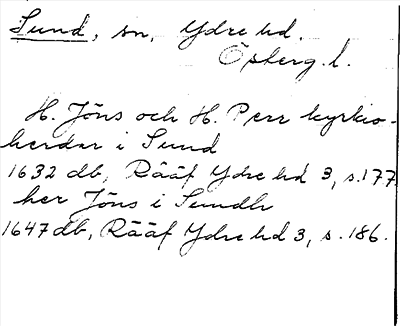 Sund, sn, Ydre hd.
Österg. l.
H. Jöns och H. Perr kyrkio-
herdar i Sund
1632 db, Rääf Ydre hd 3, s.177.
her Jöns i Sundh
1647 db, Rääf Ydre hd 3, s. 186.